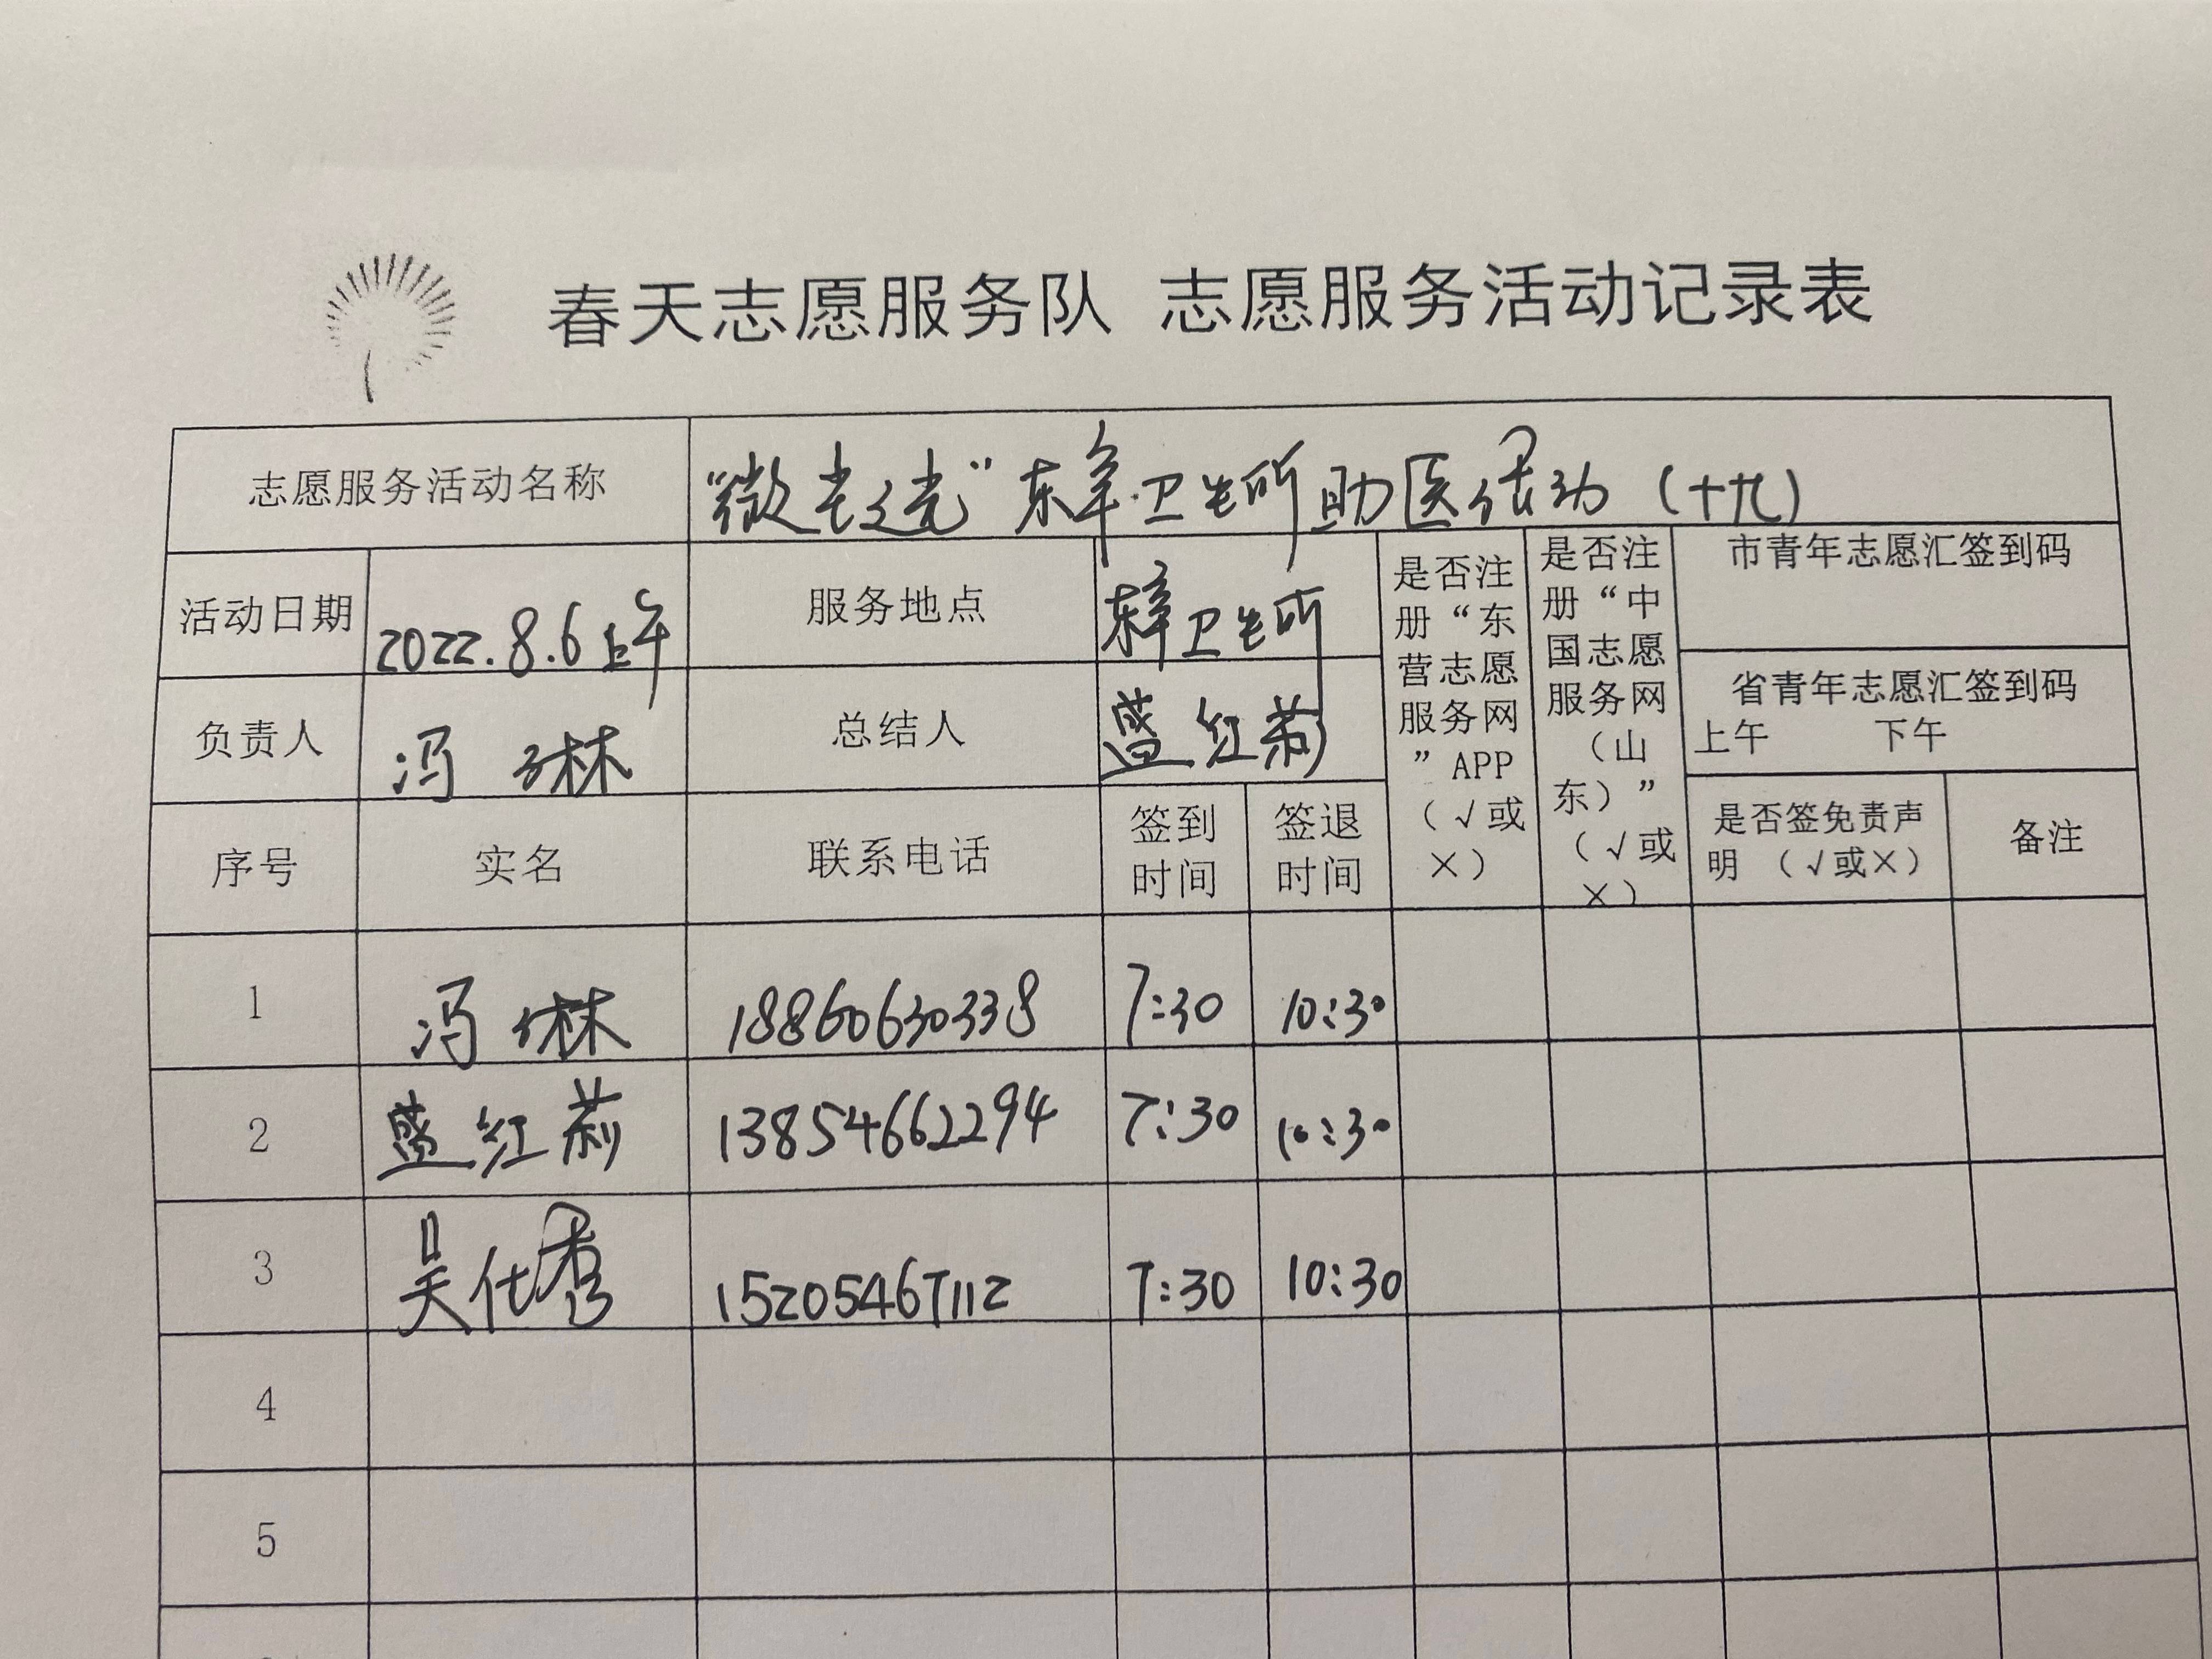 春天志愿服务队 志愿服务活动记录表
志愿服务活动名称 “微尘之光”东辛卫生所助医活动（十九）
活动日期 2022.8.6上午 服务地点 东辛卫生所
是否注册“东营志愿服务网”APP（√或×）
是否注册“中国志愿服务网（山东）”（√或×）
市青年志愿汇签到码
省青年志愿汇签到码
上午 下午
负责人 冯琳 总结人 盛红莉
序号 实名 联系电话 签到时间 签退时间 是否签免责声明（√或×） 备注
1 冯琳 18860630338 7:30 10:30
2 盛红莉 13854662294 7:30 10:30
3 吴仕秀 15205467112 7:30 10:30
4
5